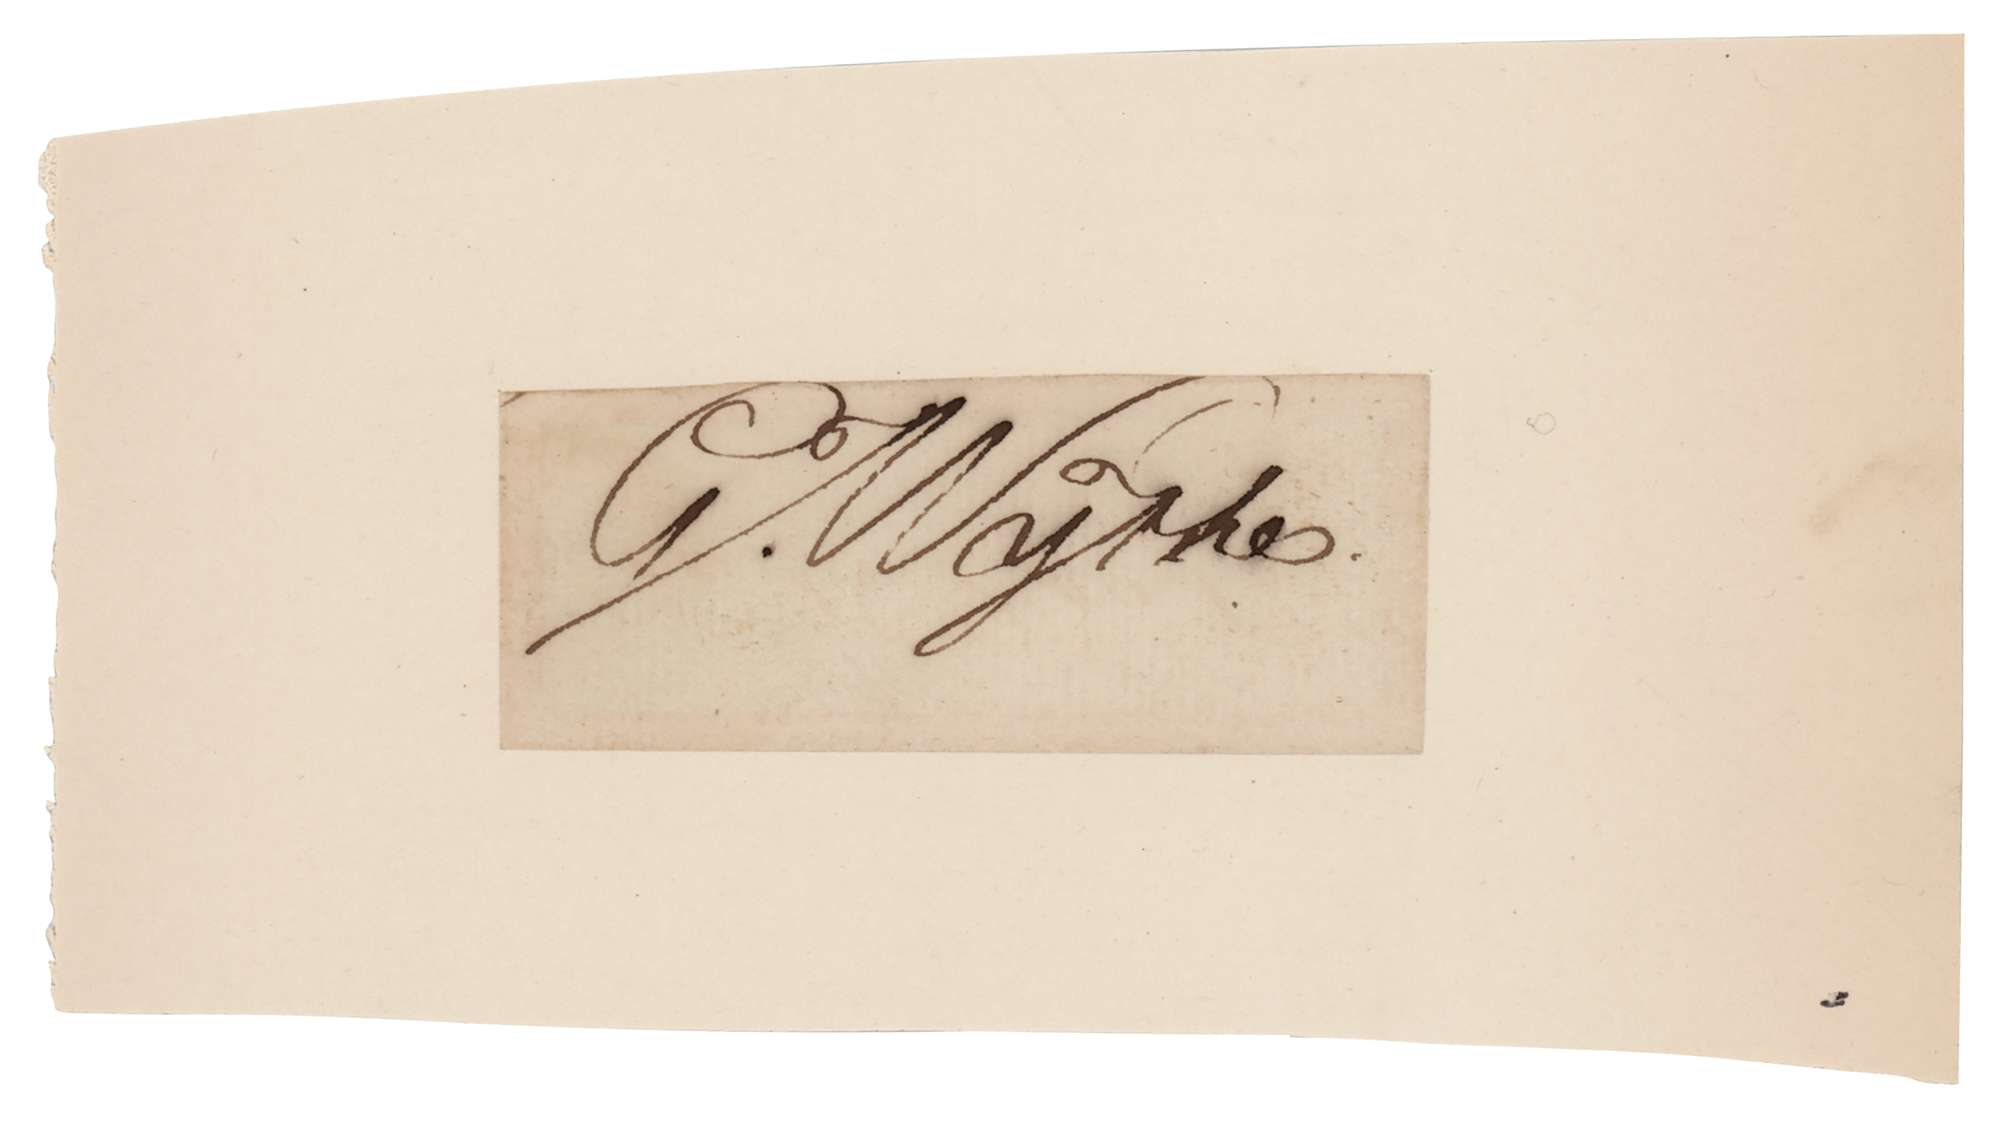 G. Wythe.